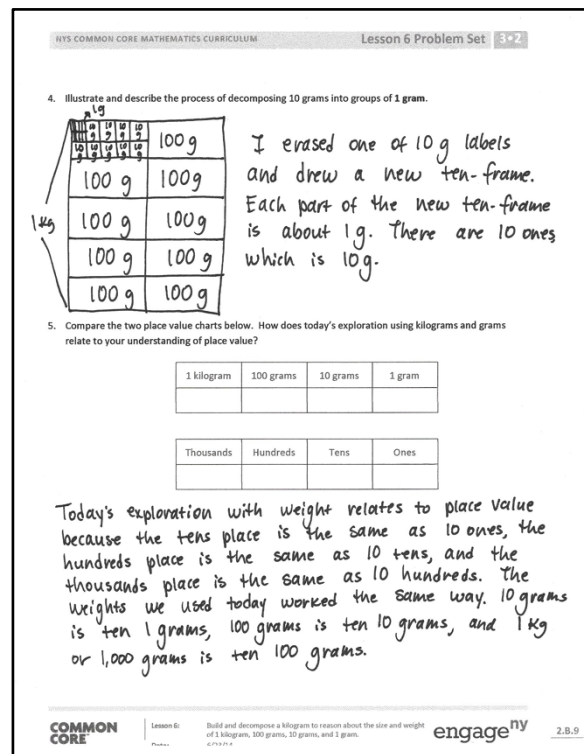 NYS COMMON CORE MATHEMATICS CURRICULUM
Lesson 6 Problem Set 3•2
4. Illustrate and describe the process of decomposing 10 grams into groups of 1 gram.
1g
10g 10g 10g 10g 100g
10g 10g 10g 10g 10g
100g 100g
1kg
100g 100g
100g 100g
100g 100g
I erased one of 10g labels
and drew a new ten-frame.
Each part of the new ten-frame
is about 1g. There are 10 ones
which is 10g.
5. Compare the two place value charts below. How does today's exploration using kilograms and grams
relate to your understanding of place value?
1 kilogram 100 grams 10 grams 1 gram
Thousands Hundreds Tens Ones
Today's exploration with weight relates to place value
because the tens place is the same as 10 ones, the
hundreds place is the same as 10 tens, and the
thousands place is the same as 10 hundreds. The
weights we used today worked the same way. 10 grams
is ten 1 grams, 100 grams is ten 10 grams, and 1 kg
or 1,000 grams is ten 100 grams.
COMMON
CORE
Lesson 6:
Build and decompose a kilogram to reason about the size and weight
of 1 kilogram, 100 grams, 10 grams, and 1 gram.
engageny
2.B.9